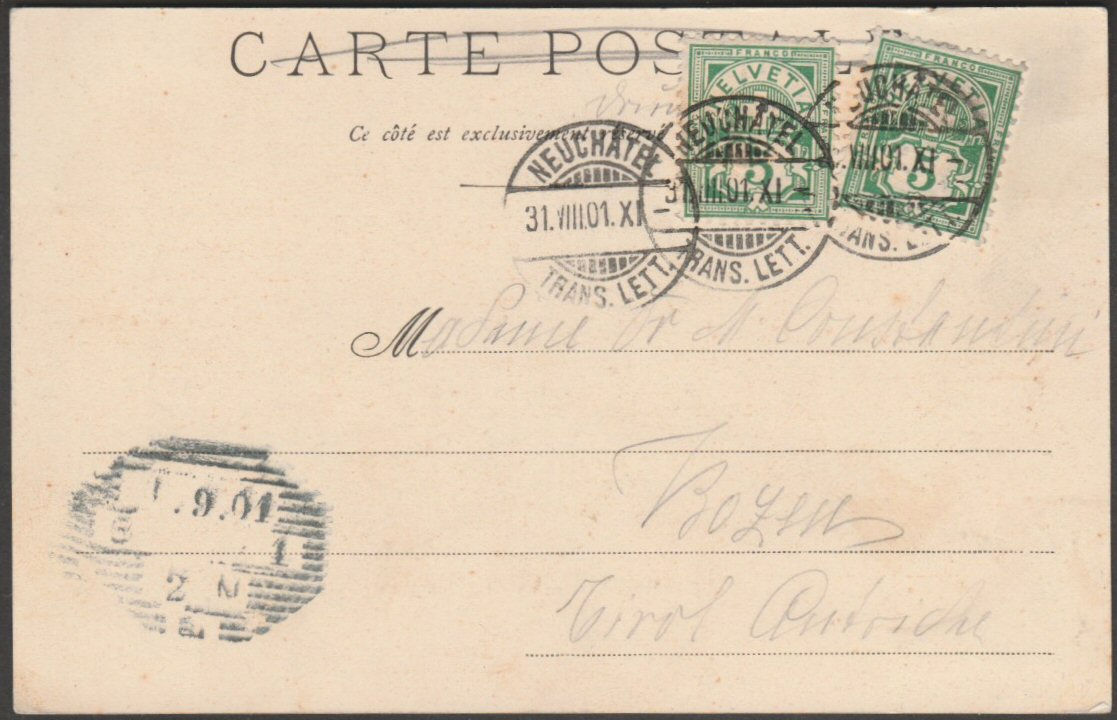 CARTE POSTALE
FRANCO
HELVETIA
5
FRANCO
HELVETIA
5
Ce côté est exclusivement réservé
NEUCHÂTEL
31.VIII.01.XI
TRANS. LETT.
NEUCHÂTEL
31.VIII.01.XI
TRANS. LETT.
NEUCHÂTEL
VIII.01.XI
TRANS. LETT.
Madame Dr M. Constantini
Bozen
Tirol Autriche
.9.01
1
2 N